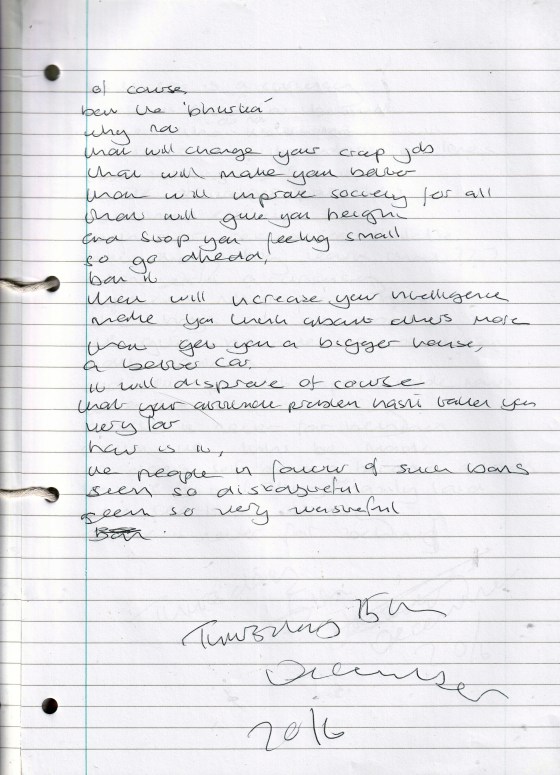 of course
ban the 'bhurka'
why not
that will change your crap job
that will make you better
that will improve society for all
that will give you height
and stop you feeling small
so go ahead,
ban it
that will increase your intelligence
make you think about others more
that get you a bigger house,
a better car.
it will disprove of course
that your attitude problem hasn't taken you
very far
how is it,
the people in favour of such bans
seem so distasteful
seem so very wasteful
Ban.
Thursday 15th
December
2016